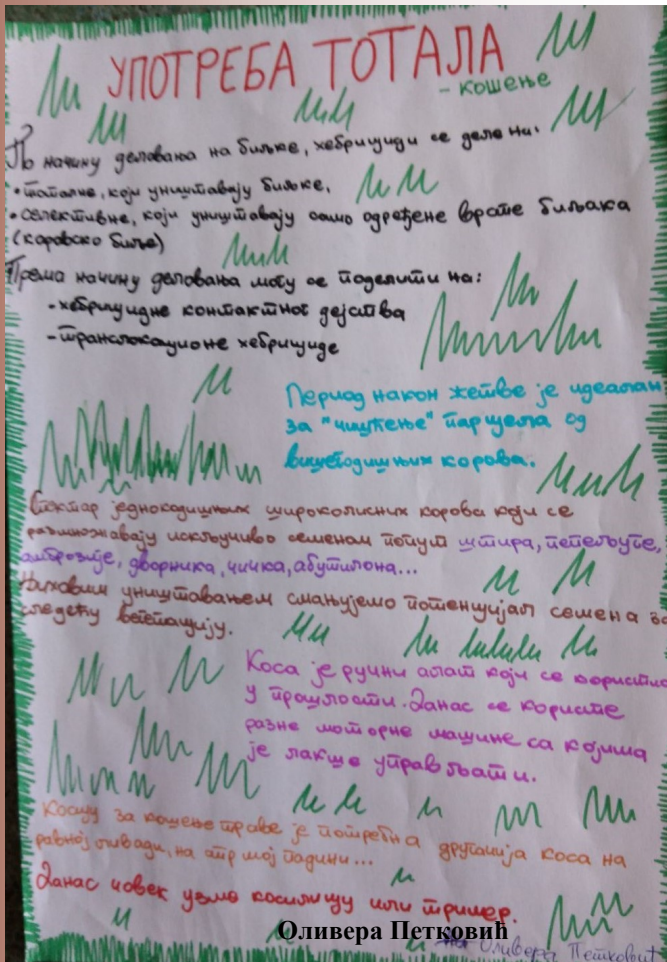 УПОТРЕБА ТОТАЛА
- КОШЕЊЕ
По начину деловања на биљке, хебрициди се деле на:
• тоталне, који уништавају биљке,
• селективне, који уништавају само одређене врсте биљака
(коровско биље)
Према начину деловања могу се поделити на:
- хебрициде контактног дејства
- транслокационе хебрициде
Период након жетве је идеалан
за "чишћење" парцела од
вишегодишњих корова.
Спектар једногодишњих широколисних корова који се
размножавају искључиво семеном попут штира, пепељуге,
амброзије, дворника, чичка, абутилона...
Њиховим уништавањем смањујемо потенцијал семена за
следећу вегетацију.
Коса је ручни алат који се користио
у прошлости. Данас се користе
разне моторне машине са којима
је лакше управљати.
Косцу за кошење траве је потребна другачија коса на
равној ливади, на стрмој падини...
Данас човек узме косилицу или тример.
Оливера Петковић
Оливера Петковић